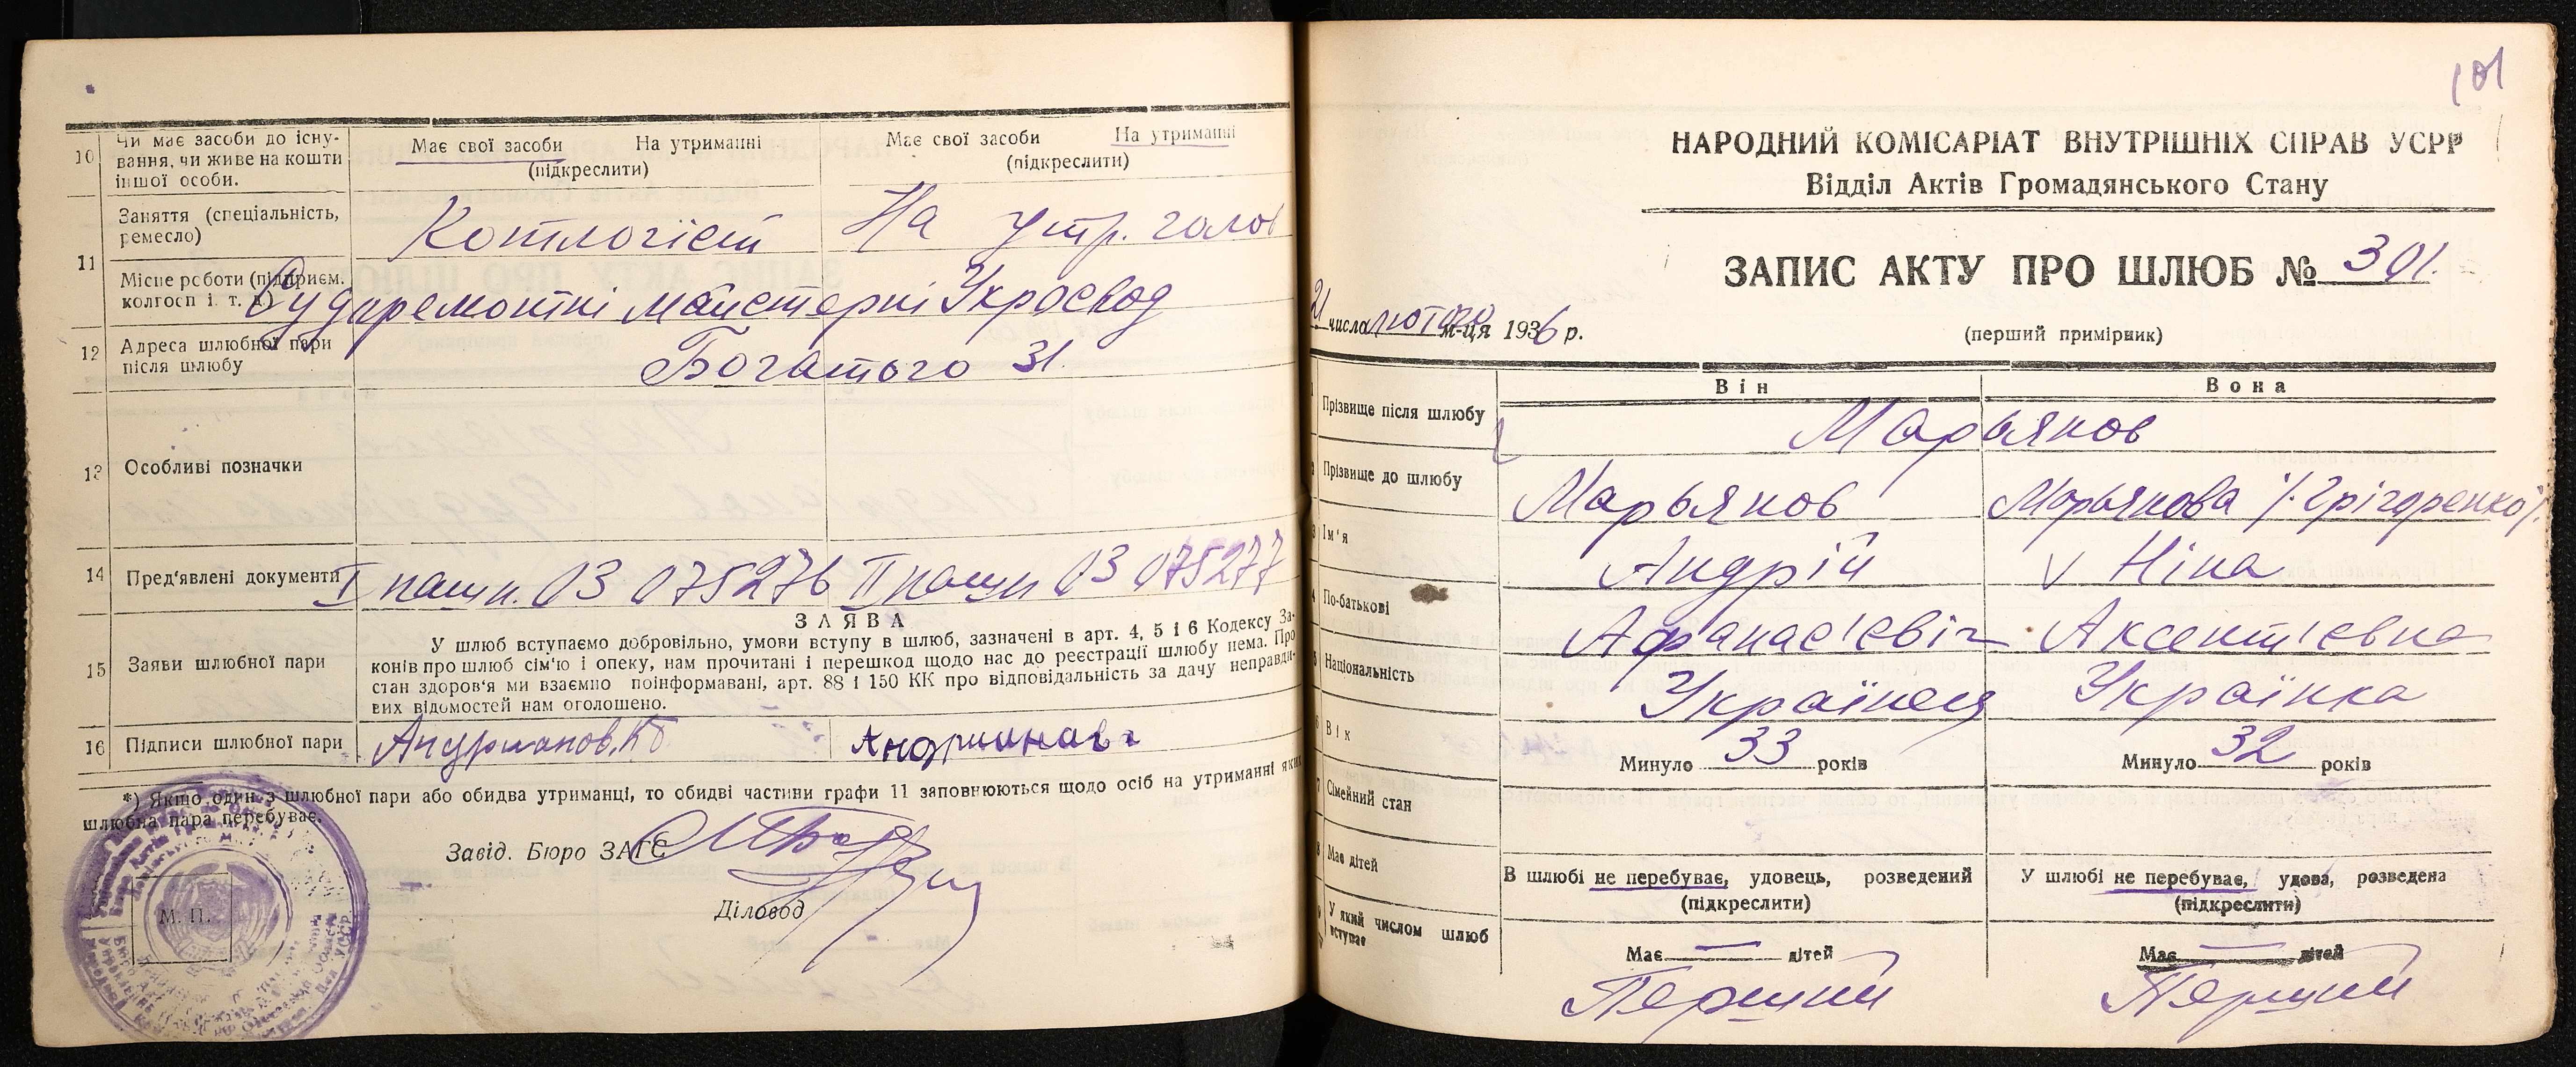 10 Чи має засоби до існу-
вання, чи живе на кошти
іншої особи.
Має свої засоби На утриманні
(підкреслити)
Має свої засоби На утриманні
(підкреслити)
11 Заняття (спеціальність,
ремесло)
Котлогієт На утр. голов
Місце роботи (підприєм.
колгосп і. т. д.)
Судоремонтні майстерні Укросвод
12 Адреса шлюбної пари
після шлюбу
Богатого 31.
13 Особливі позначки
14 Пред'явлені документи
I пашп. 03 075276 II пашп 03 075277
15 Заяви шлюбної пари
ЗАЯВА
У шлюб вступаємо добровільно, умови вступу в шлюб, зазначені в арт. 4, 5 і 6 Кодексу За-
конів про шлюб сім'ю і опеку, нам прочитані і перешкод щодо нас до реєстрації шлюбу нема. Про
стан здоров'я ми взаємно поінформавані, арт. 88 і 150 КК про відповідальність за дачу неправди-
вих відомостей нам оголошено.
16 Підписи шлюбної пари
*) Якщо один з шлюбної пари або обидва утриманці, то обидві частини графи 11 заповнюються щодо осіб на утриманні яких
шлюбна пара перебуває.
Завід. Бюро ЗАГС
Діловод
М. П.
101
НАРОДНИЙ КОМІСАРІАТ ВНУТРІШНІХ СПРАВ УСРР
Відділ Актів Громадянського Стану
ЗАПИС АКТУ ПРО ШЛЮБ № 301.
21 числа лютого м-ця 1936 р.
(перший примірник)
Він Вона
Прізвище після шлюбу
Марьянов
Прізвище до шлюбу
Марьянов Марьянова /Грігоренко/.
Ім'я
Андрій v Ніна
По-батькові
Афанасієвіч Аксентієвна
Національність
Українец Українка
Вік
Минуло 33 років Минуло 32 років
Сімейний стан
В шлюбі не перебуває, удовець, розведений
(підкреслити)
У шлюбі не перебуває, удова, розведена
(підкреслити)
Має дітей
Має — дітей Має — дітей
У який числом шлюб
вступає
Перший Перший